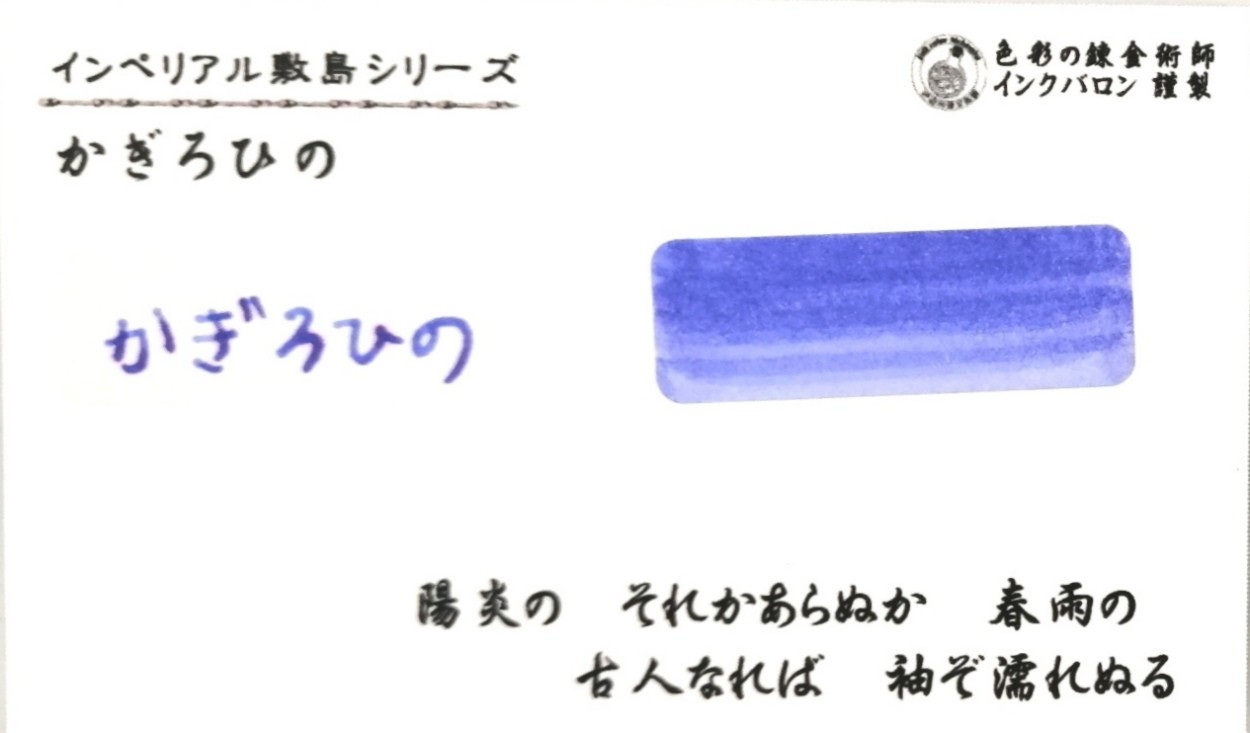 インペリアル敷島シリーズ
色彩の錬金術師
インクバロン 謹製
かぎろひの
かぎろひの
陽炎の　それかあらぬか　春雨の
古人なれば　袖ぞ濡れぬる